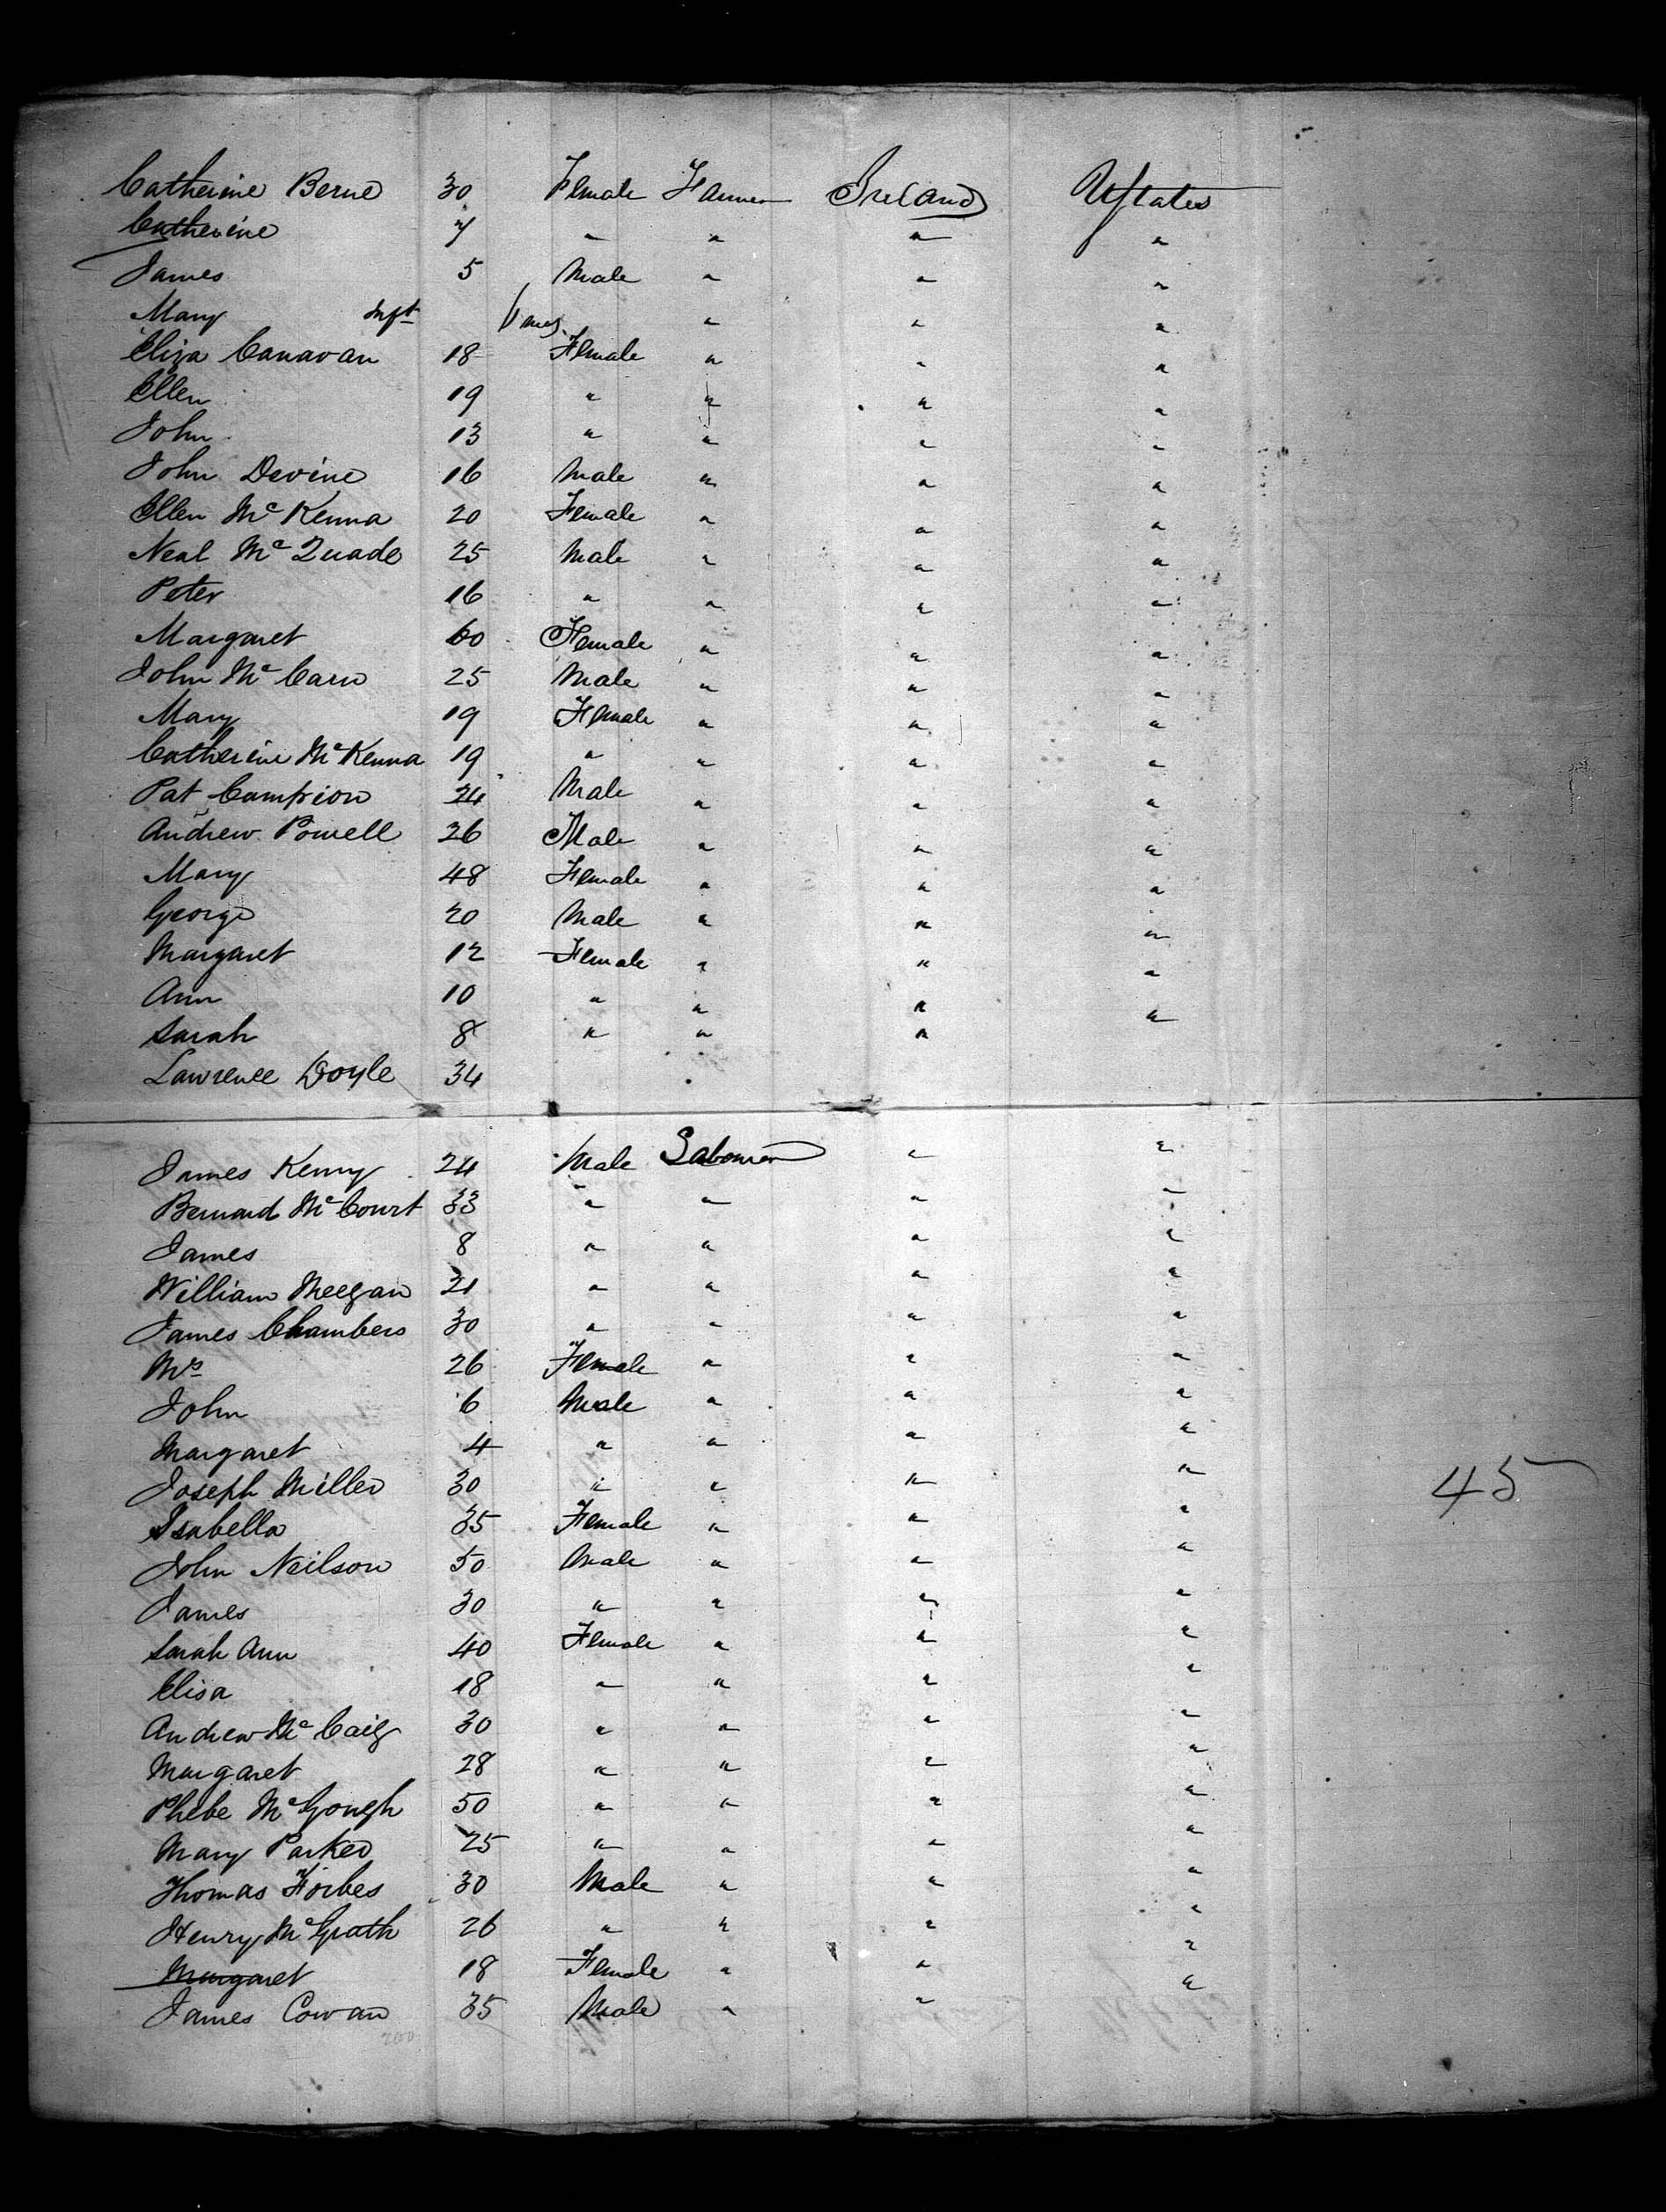 Catherine Berne 30 Female Farmer Ireland UStates
Catherine 7 " " " "
James 5 Male " " "
Mary Inft mos " " "
Eliza Canavan 18 Female " " "
Ellen 19 " " " "
John 13 " " " "
John Devine 16 Male " " "
Ellen McKenna 20 Female " " "
Neal McQuade 25 Male " " "
Peter 16 " " " "
Margaret 60 Female " " "
John McCarn 25 Male " " "
Mary 19 Female " " "
Catherine McKenna 19 " " " "
Pat Campion 24 Male " " "
Andrew Powell 26 Male " " "
Mary 48 Female " " "
George 20 Male " " "
Margaret 12 Female " " "
Ann 10 " " " "
Sarah 8 " " "
Lawrence Doyle 34
James Kenny 24 Male Labourer " "
Bernard McCourt 33 " " " "
James 8 " " " "
William Meegan 21 " " " "
James Chambers 30 " " " "
Mrs 26 Female " " "
John 6 Male " " "
Margaret 4 " " " "
Joseph Miller 30 " " " "
Isabella 35 Female " " "
John Neilson 50 Male " " "
James 30 " " " "
Sarah Ann 40 Female " " "
Elisa 18 " " " "
Andrew McCaig 30 " " " "
Margaret 28 " " " "
Phebe McGough 50 " " " "
Mary Parker 25 " " " "
Thomas Forbes 30 Male " " "
Henry McGrath 26 " " " "
Margaret 18 Female " " "
James Cowan 35 Male " " "
45